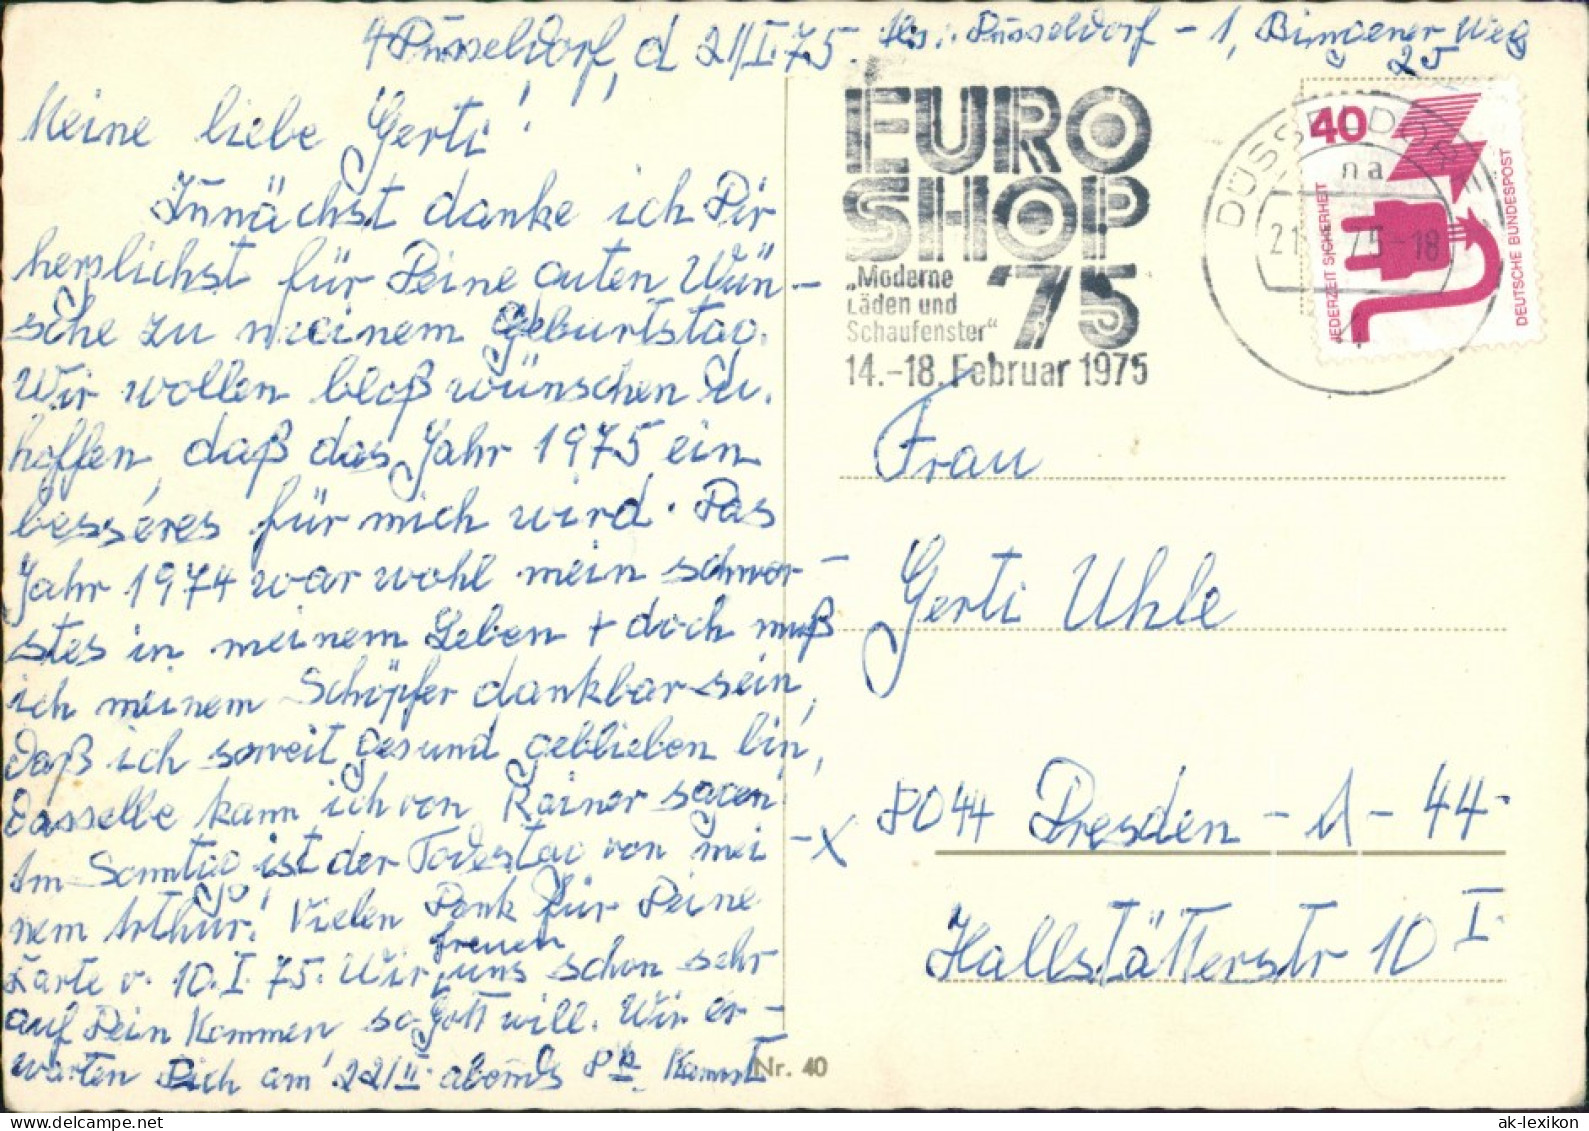 4 Düsseldorf, d 21/I.75. Abs.: Düsseldorf - 1, Bingener Weg
25
Meine liebe Gerti!
Zunächst danke ich Dir
herzlichst für Deine guten Wün-
sche zu meinem Geburtstag.
Wir wollen bloß wünschen u.
hoffen, daß das Jahr 1975 ein
besseres für mich wird. Das
Jahr 1974 war wohl mein schwer-
stes in meinem Leben + doch muß
ich meinem Schöpfer dankbar sein,
daß ich soweit gesund geblieben bin,
dasselbe kann ich von Rainer sagen.
Am Sonntag ist der Todestag von mei-
nem Arthur! Vielen Dank für Deine
Karte v. 10.I.75. Wir freuen uns schon sehr
auf Dein Kommen, so Gott will. Wir er-
warten Dich am 22/II. abends 8 Kommst
EURO
SHOP
'75
„Moderne
Läden und
Schaufenster"
14.-18. Februar 1975
DÜSSELDORF
na
21. 75-18
40
JEDERZEIT SICHERHEIT
DEUTSCHE BUNDESPOST
Frau
Gerti Uhle
8044 Dresden - A - 44-
Hallstätterstr 10 I.
Nr. 40
ak-lexikon.com